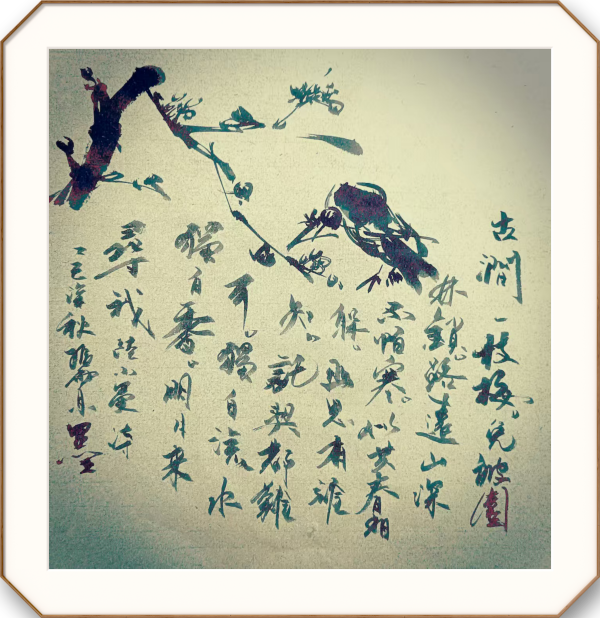 古澗一枝梅。免被園
林鎖。路遠山深
不怕寒。似共春相
躲。幽思有誰
知。託契都難
可。獨自流水
獨自香。明月來
尋我 陸小曼詩
深秋 墨